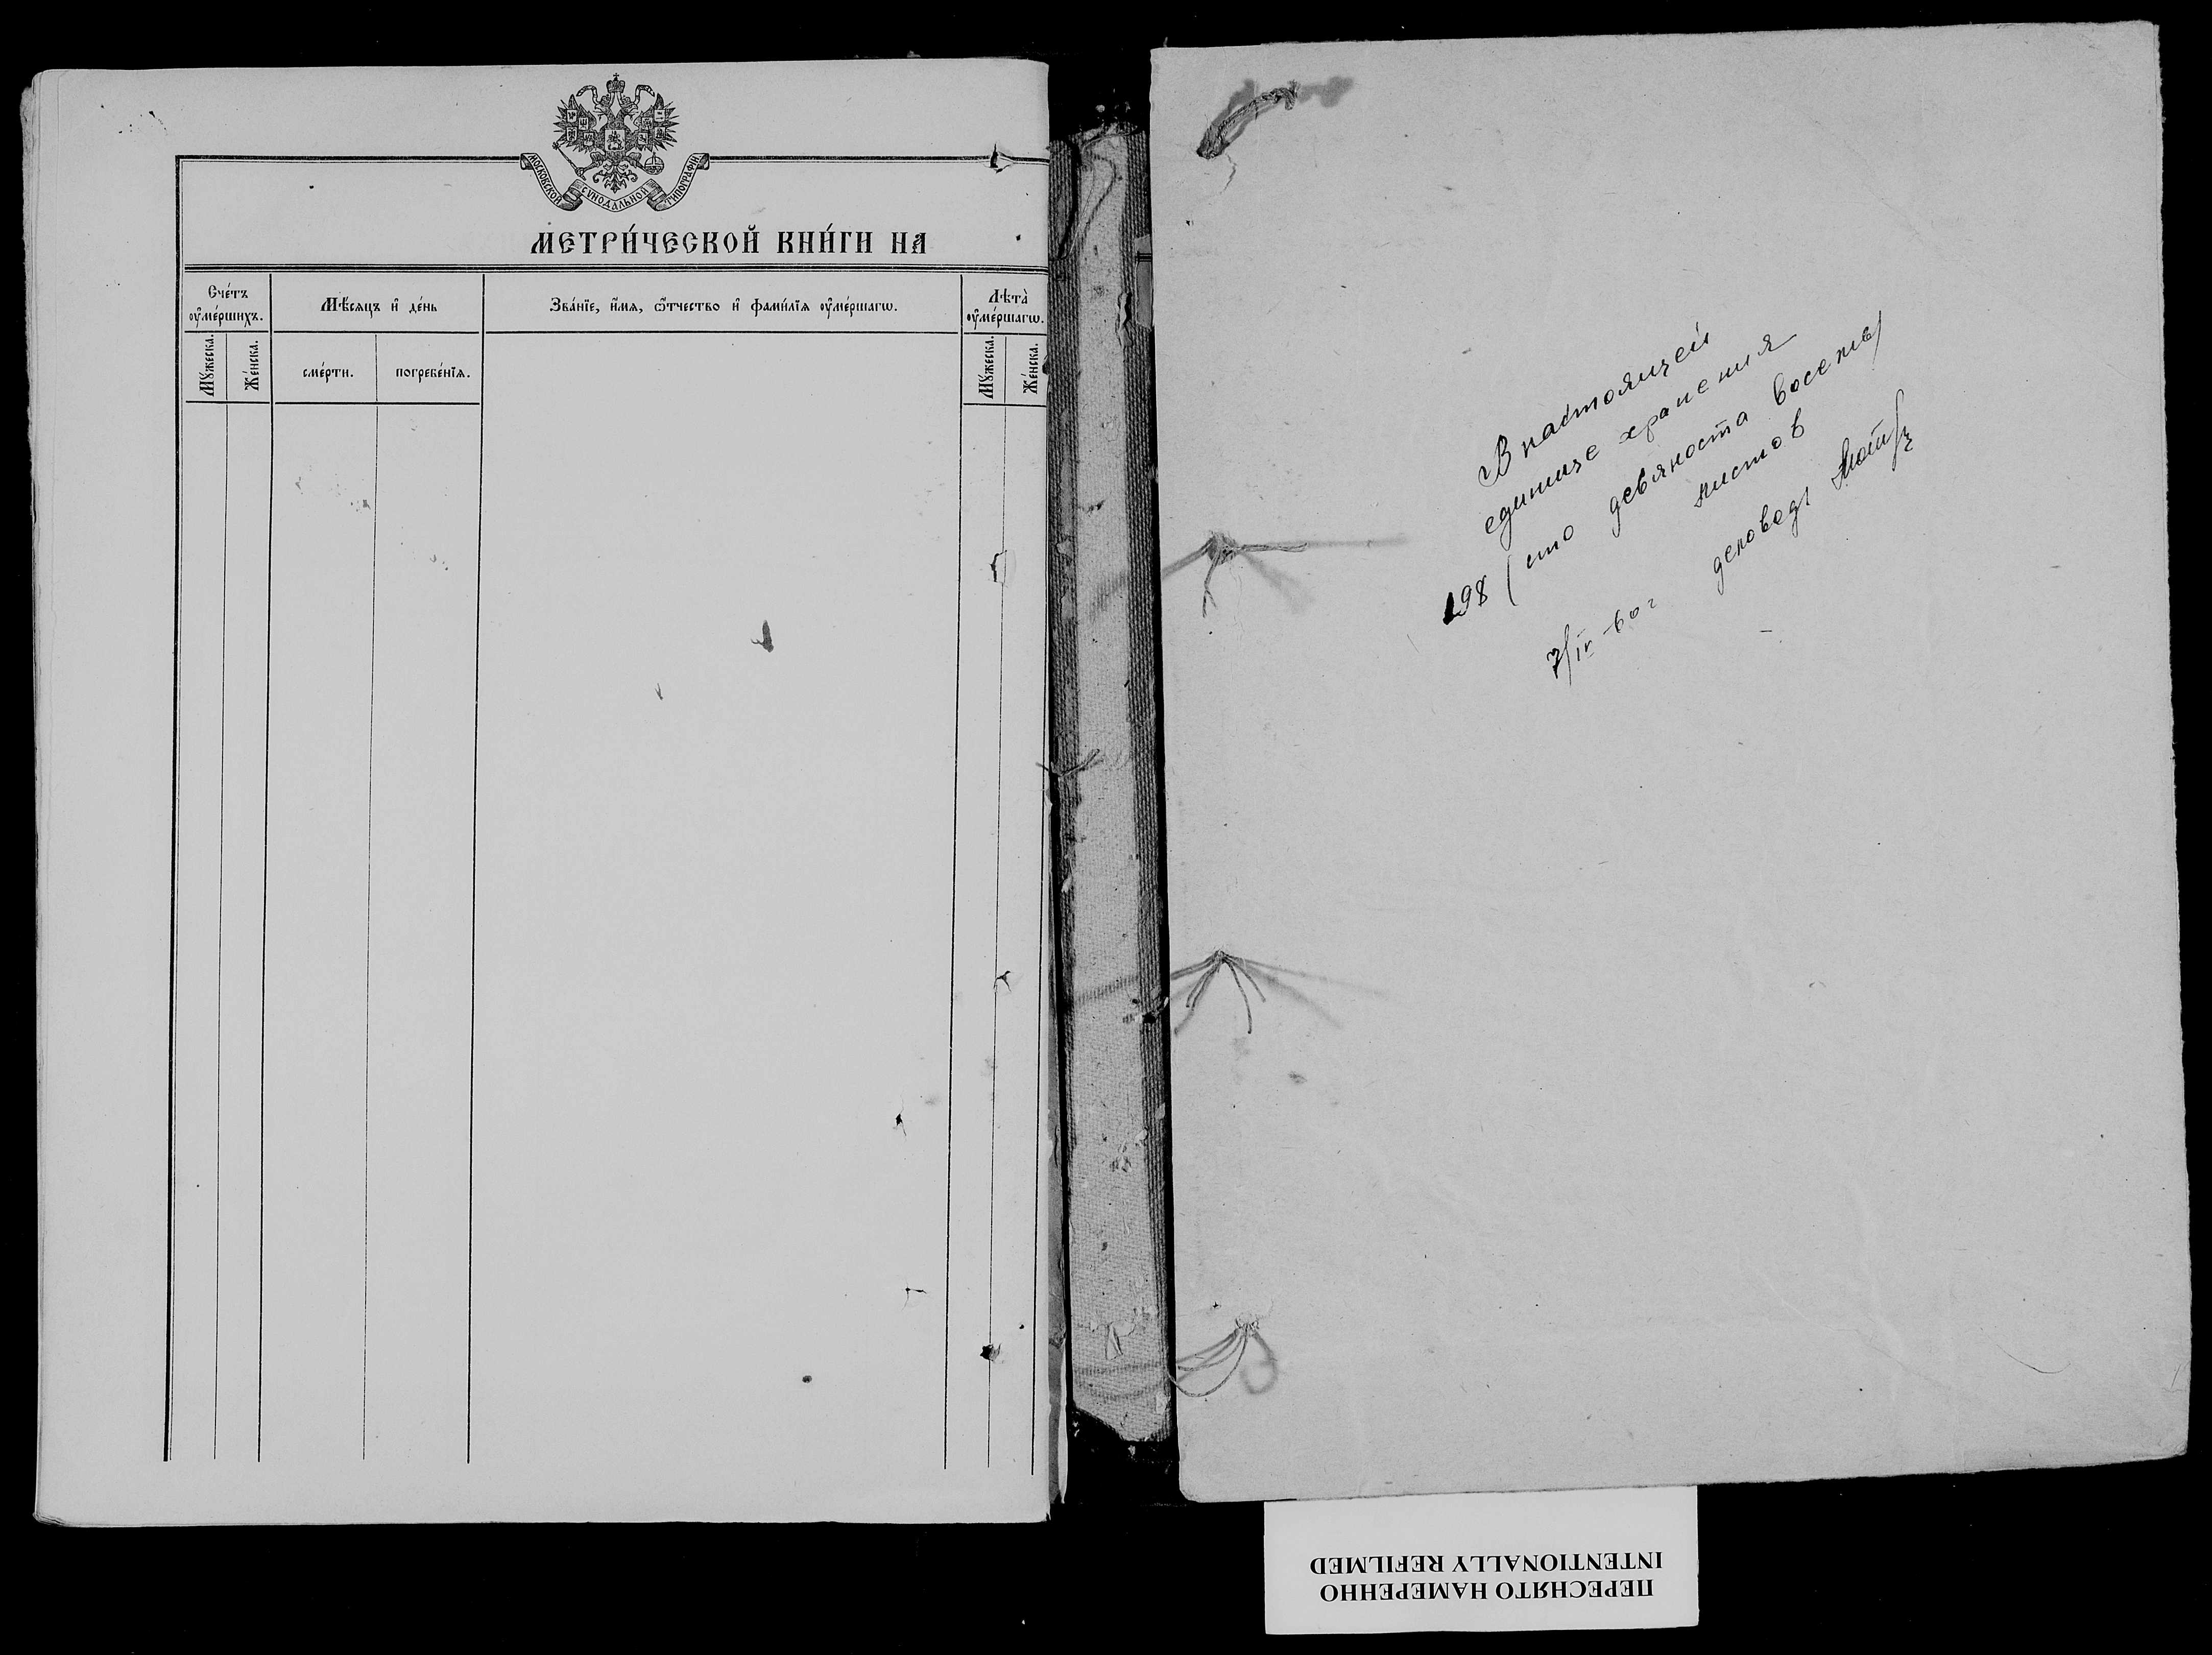 МОСКОВСКОЙ СѴНОДАЛЬНОЙ ТИПОГРАФІИ
МЕТРИ́ЧЕСКОЙ КНИ́ГИ НА
Сче́тъ ᲂу҆ме́ршихъ.
Мѣ́сяцъ и҆ де́нь
Зва́нїе, и҆́мя, ѻ҆́тчество и҆ фами́лїя ᲂу҆ме́ршагѡ.
Лѣта̀ ᲂу҆ме́ршагѡ.
Мꙋ́жеска.
Же́нска.
сме́рти.
погребе́нїя.
Мꙋ́жеска.
Же́нска.
В настоящей
единице хранения
198 (сто девяноста восемь)
листов
7/IV-60 г деловод
ПЕРЕСНЯТО НАМЕРЕННО
INTENTIONALLY REFILMED